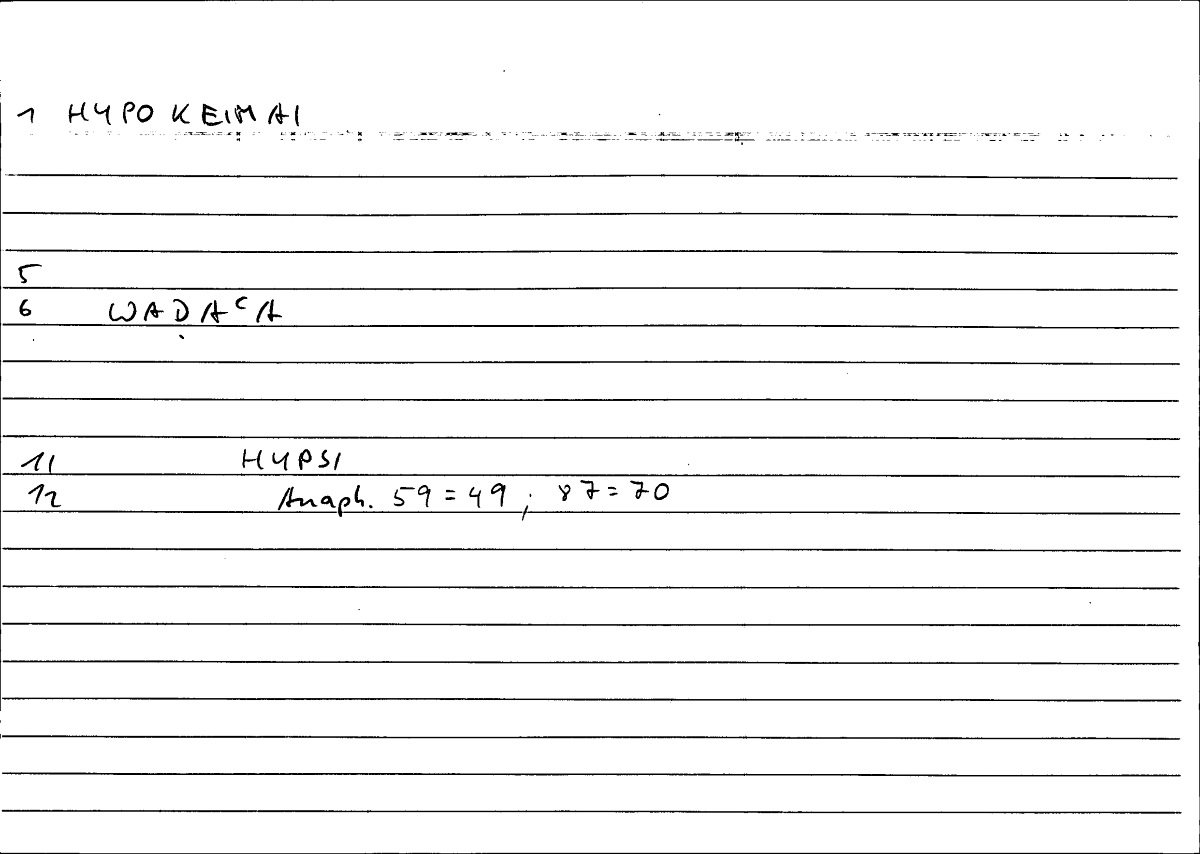 1 HYPOKEIMAI
5
6 WAḌAᶜA
11 HYPSI
12 Anaph. 59 = 49 ; 87 = 70